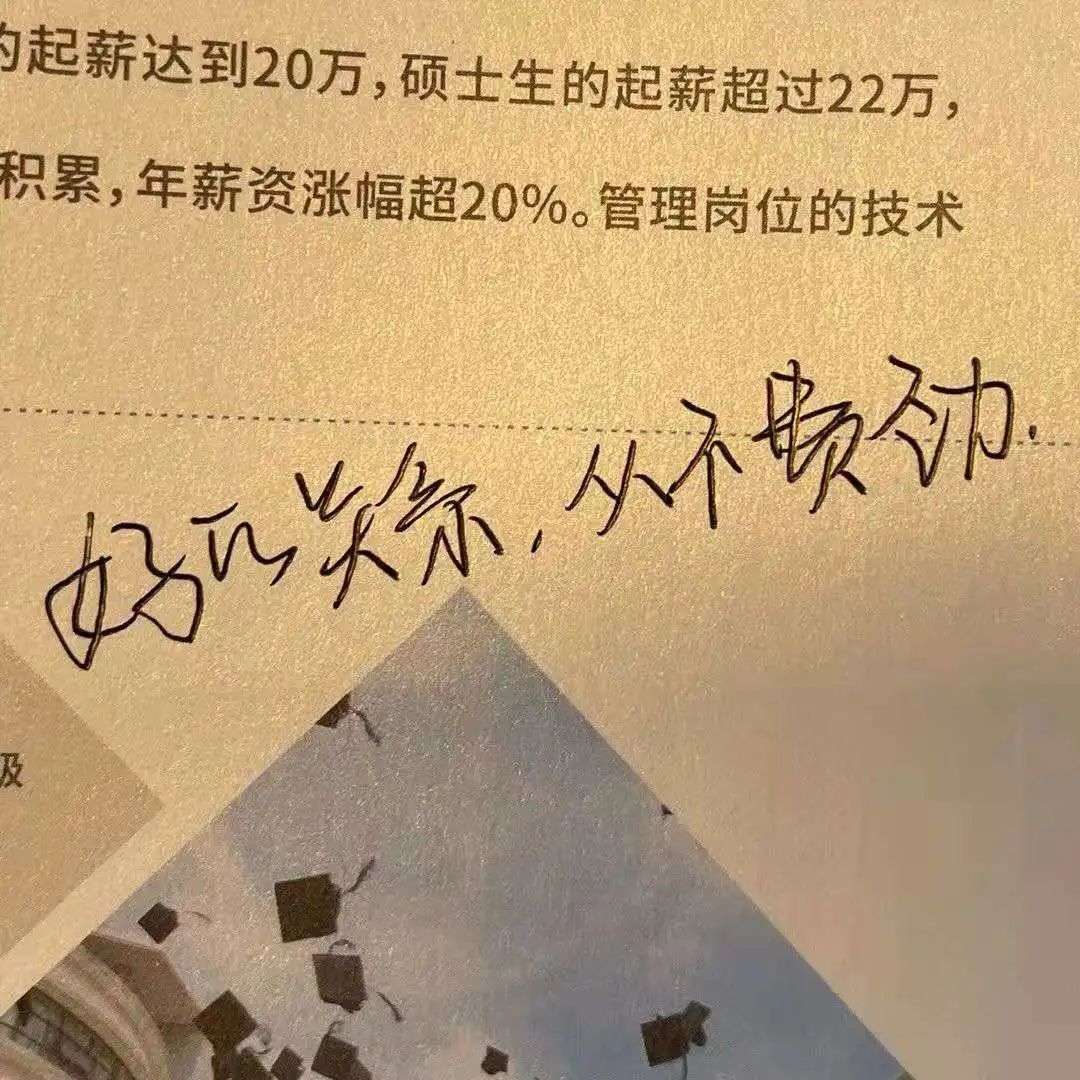 的起薪达到20万，硕士生的起薪超过22万，
积累，年薪资涨幅超20%。管理岗位的技术
好的关系，从不费劲.
级